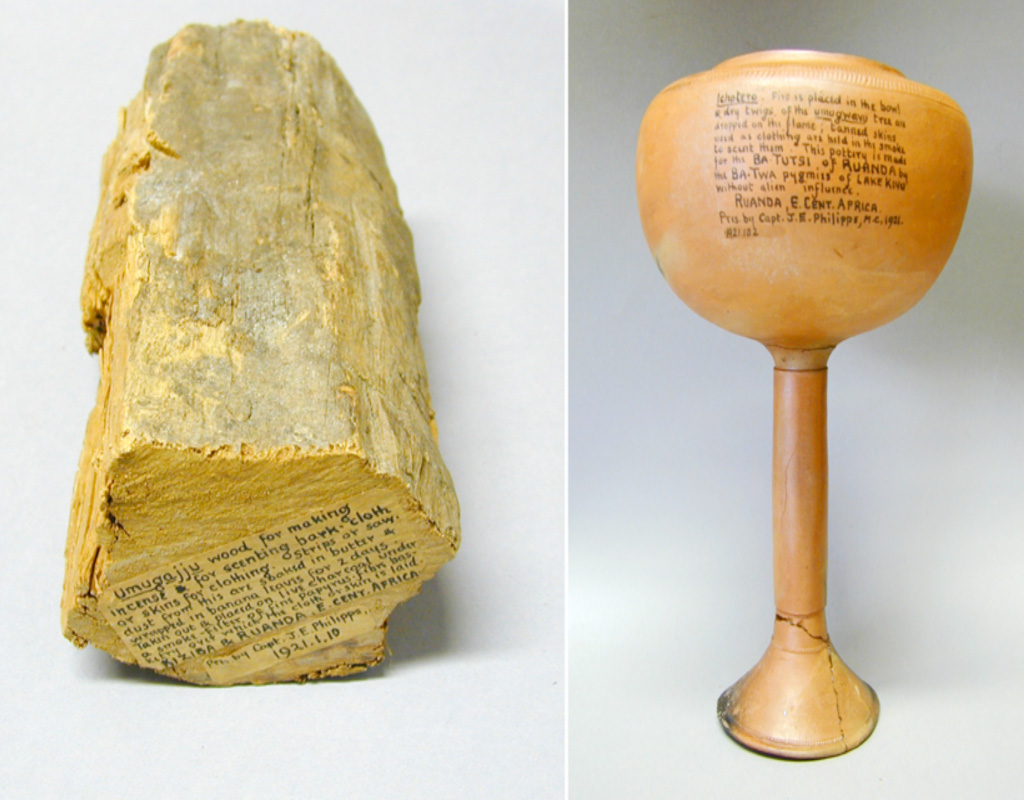 Umugajju wood for making
incense & for scenting bark-cloth
or skins for clothing. Strips or saw.
dust from this are soaked in butter &
wrapped in banana leaves for 2 days.
Taken out & placed on live charcoal under
a smoke-filter of fine Papyrus-fibre bas-
ketry over which the cloth or skin is laid
KIZIBA & RUANDA. E. CENT. AFRICA.
Pres. by Capt. J.E. Philipps.
1921.1.10
Ichotero. Fire is placed in the bowl
& dry twigs of the umugwavu tree are
dropped on the flame; tanned skins
used as clothing are held in the smoke
to scent them. This pottery is made
for the BA-TUTSI of RUANDA by
the BA-TWA pygmies of LAKE KIVU
without alien influence.
RUANDA, E. CENT. AFRICA.
Pres. by Capt. J.E. Philipps, M.C. 1921.